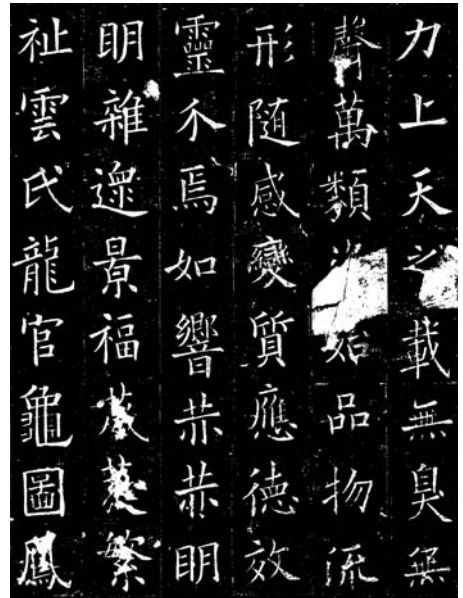 力上天之載無臭無
聲萬類始品物流
形随感變質應德效
靈介焉如響赫赫明
明雜遝景福葳蕤繁
祉雲氏龍官龜圖鳳